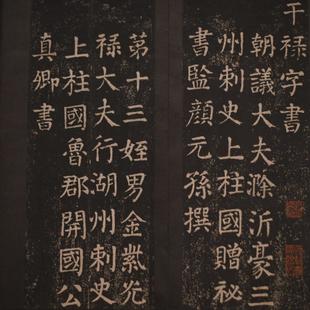 干禄字書
朝議大夫滁沂豪三
州刺史上柱國贈祕
書監顔元孫撰
第十三姪男金紫光
禄大夫行湖州刺史
上柱國魯郡開國公
真卿書